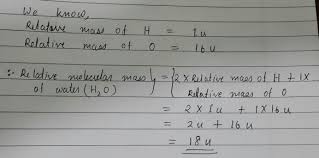 We know,
Relative mass of H = 1u
Relative mass of O = 16u
∴ Relative molecular mass of water (H₂O) } = { 2 x Relative mass of H + 1x Relative mass of O
= 2 x 1u + 1x 16u
= 2u + 16u
= 18u